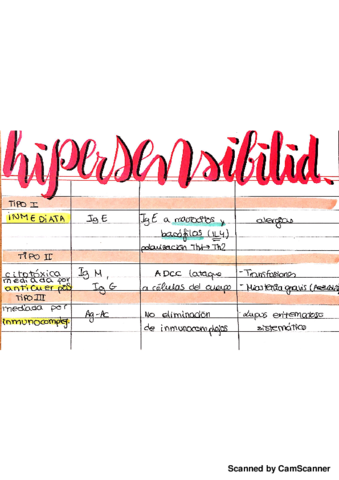 hipersensibilid.
TIPO I
INMEDIATA IgE IgE a mastocitos y alergias
basófilos (IL4)
polarización Th1→Th2
TIPO II
citotóxica IgM, ADCC (ataque - Transfusiones
mediada por IgG a células del cuerpo - Miastenia gravis
anticuerpos
TIPO III
mediada por Ag-Ac No eliminación - Lupus eritematoso
inmunocomplej de inmunocomplejos sistemático
Scanned by CamScanner